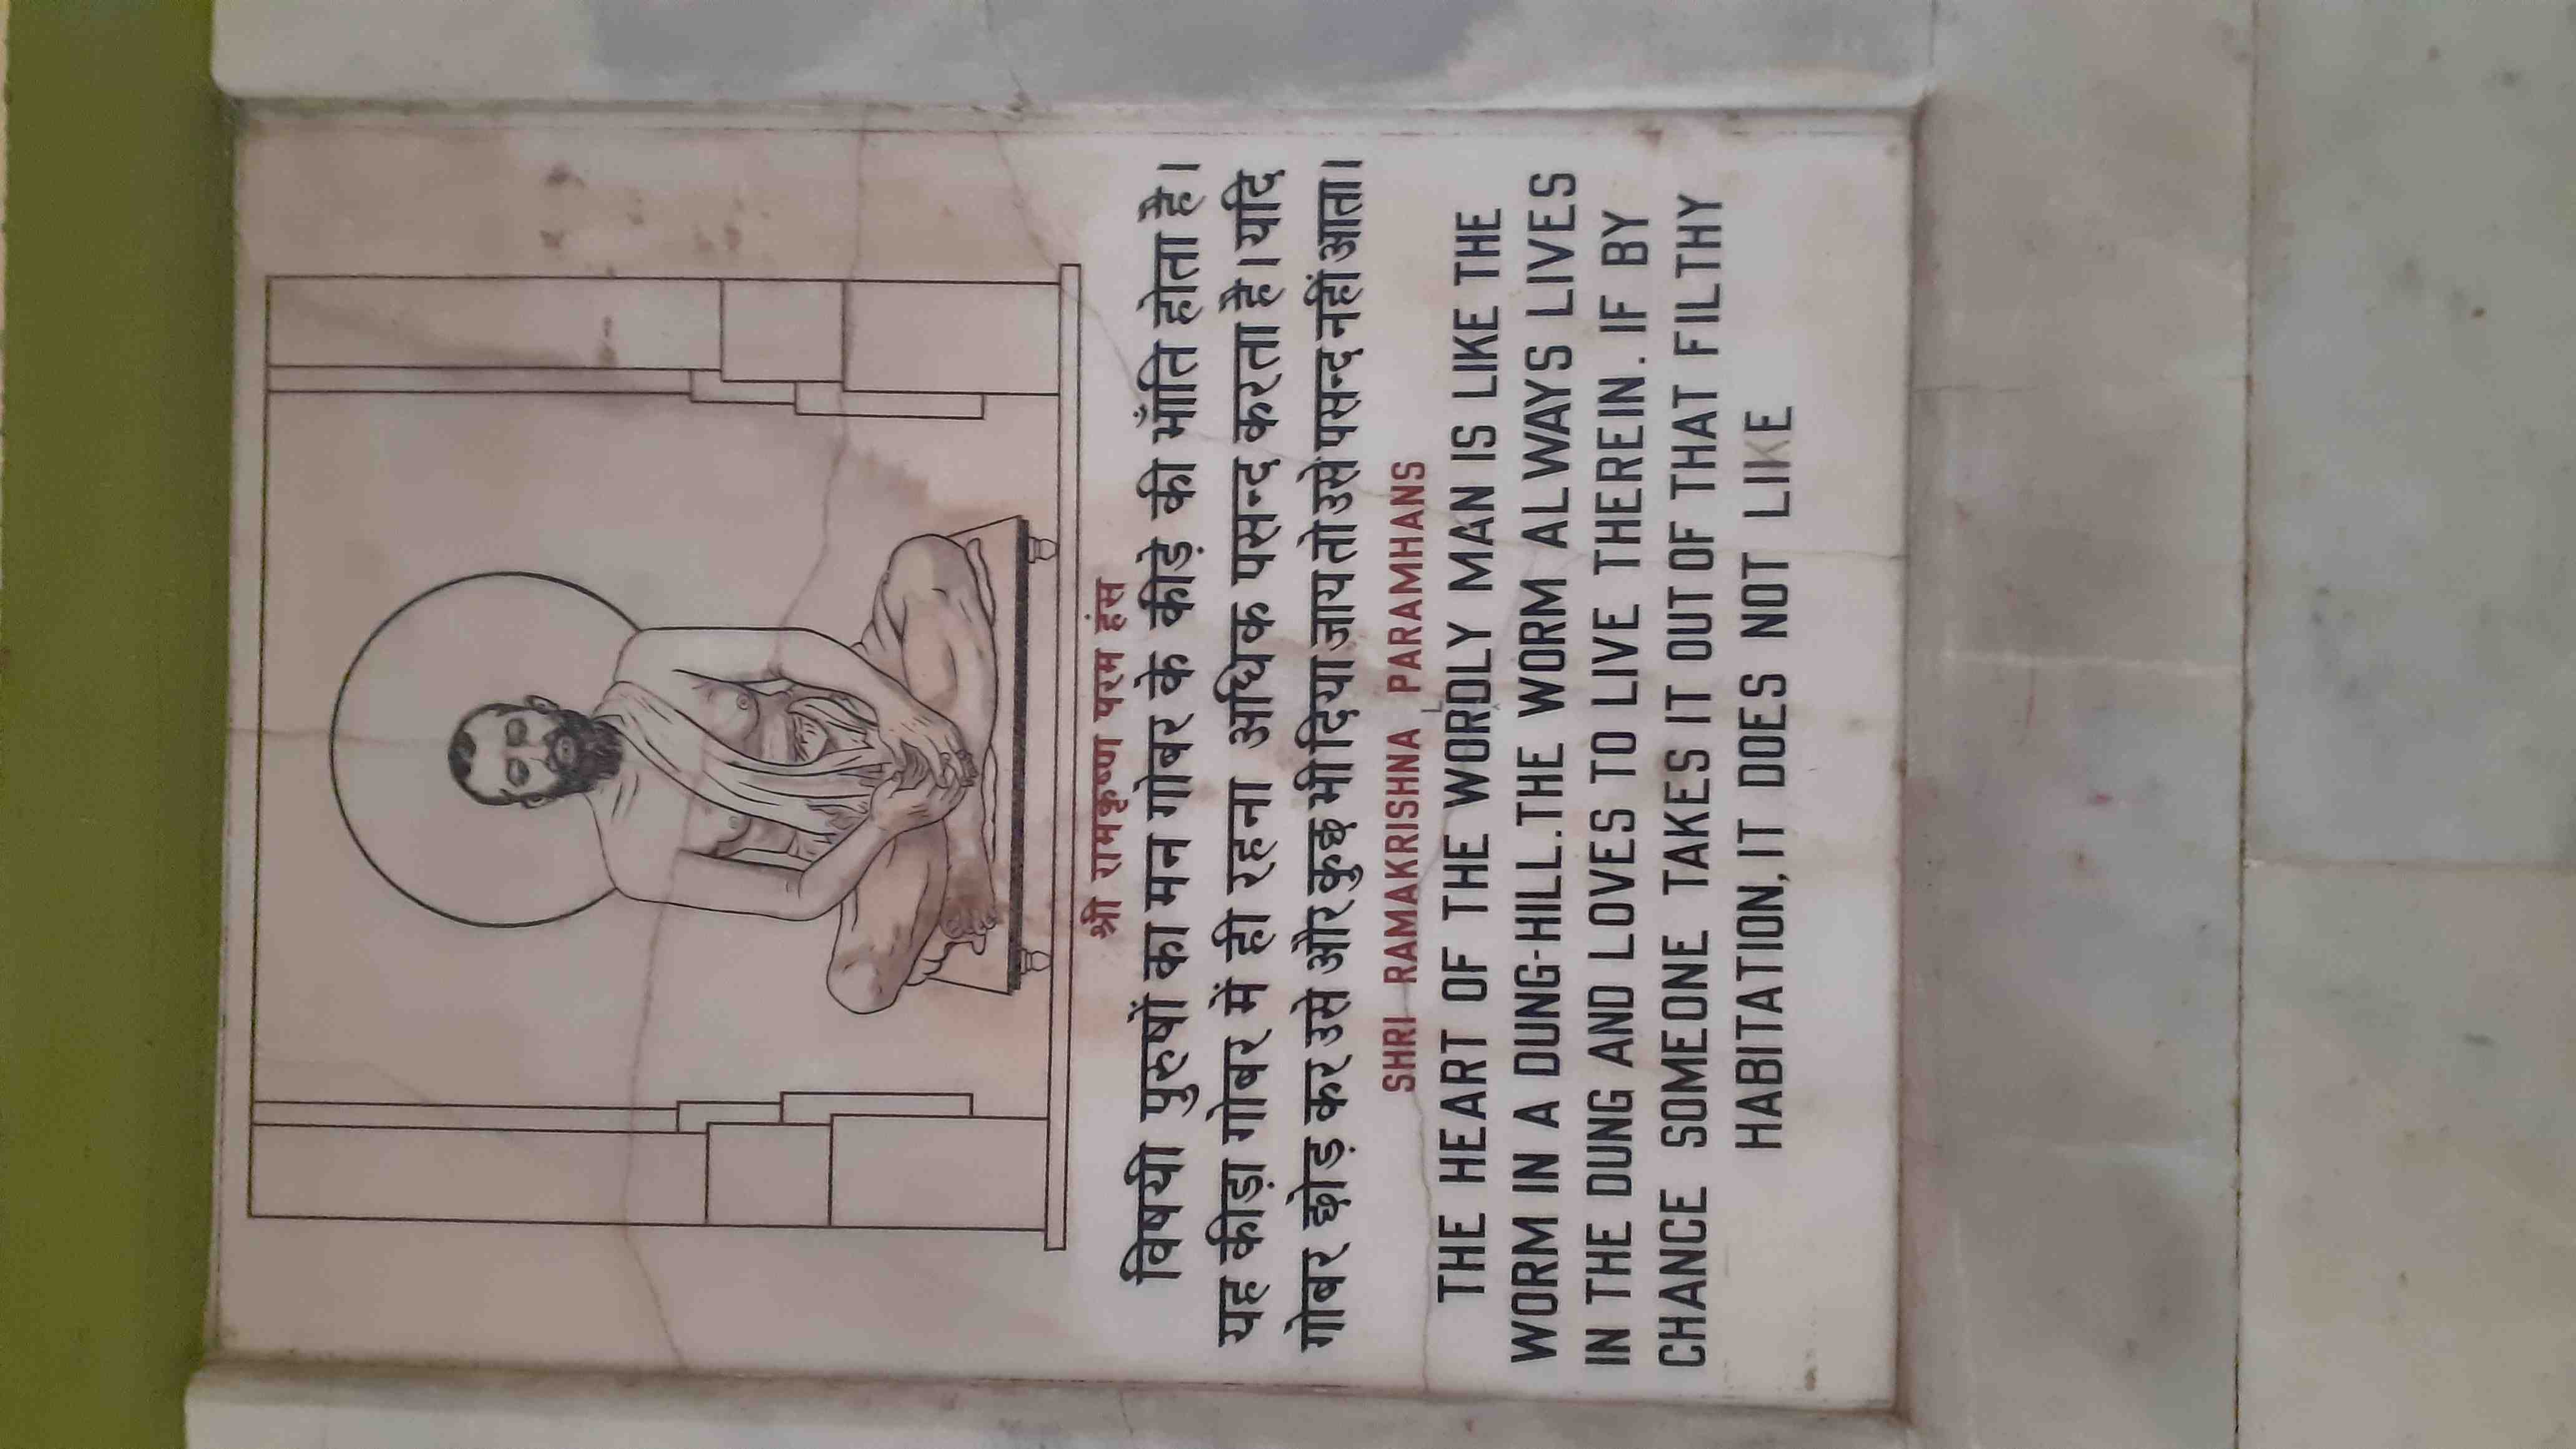 श्री रामकृष्ण परम हंस
विषयी पुरुषों का मन गोबर के कीड़े की भाँति होता है।
यह कीड़ा गोबर में ही रहना अधिक पसन्द करता है। यदि
गोबर छोड़ कर उसे और कुछ भी दिया जाय तो उसे पसन्द नहीं आता।
SHRI RAMAKRISHNA PARAMHANS
THE HEART OF THE WORDLY MAN IS LIKE THE
WORM IN A DUNG-HILL.THE WORM ALWAYS LIVES
IN THE DUNG AND LOVES TO LIVE THEREIN. IF BY
CHANCE SOMEONE TAKES IT OUT OF THAT FILTHY
HABITATION,IT DOES NOT LIKE